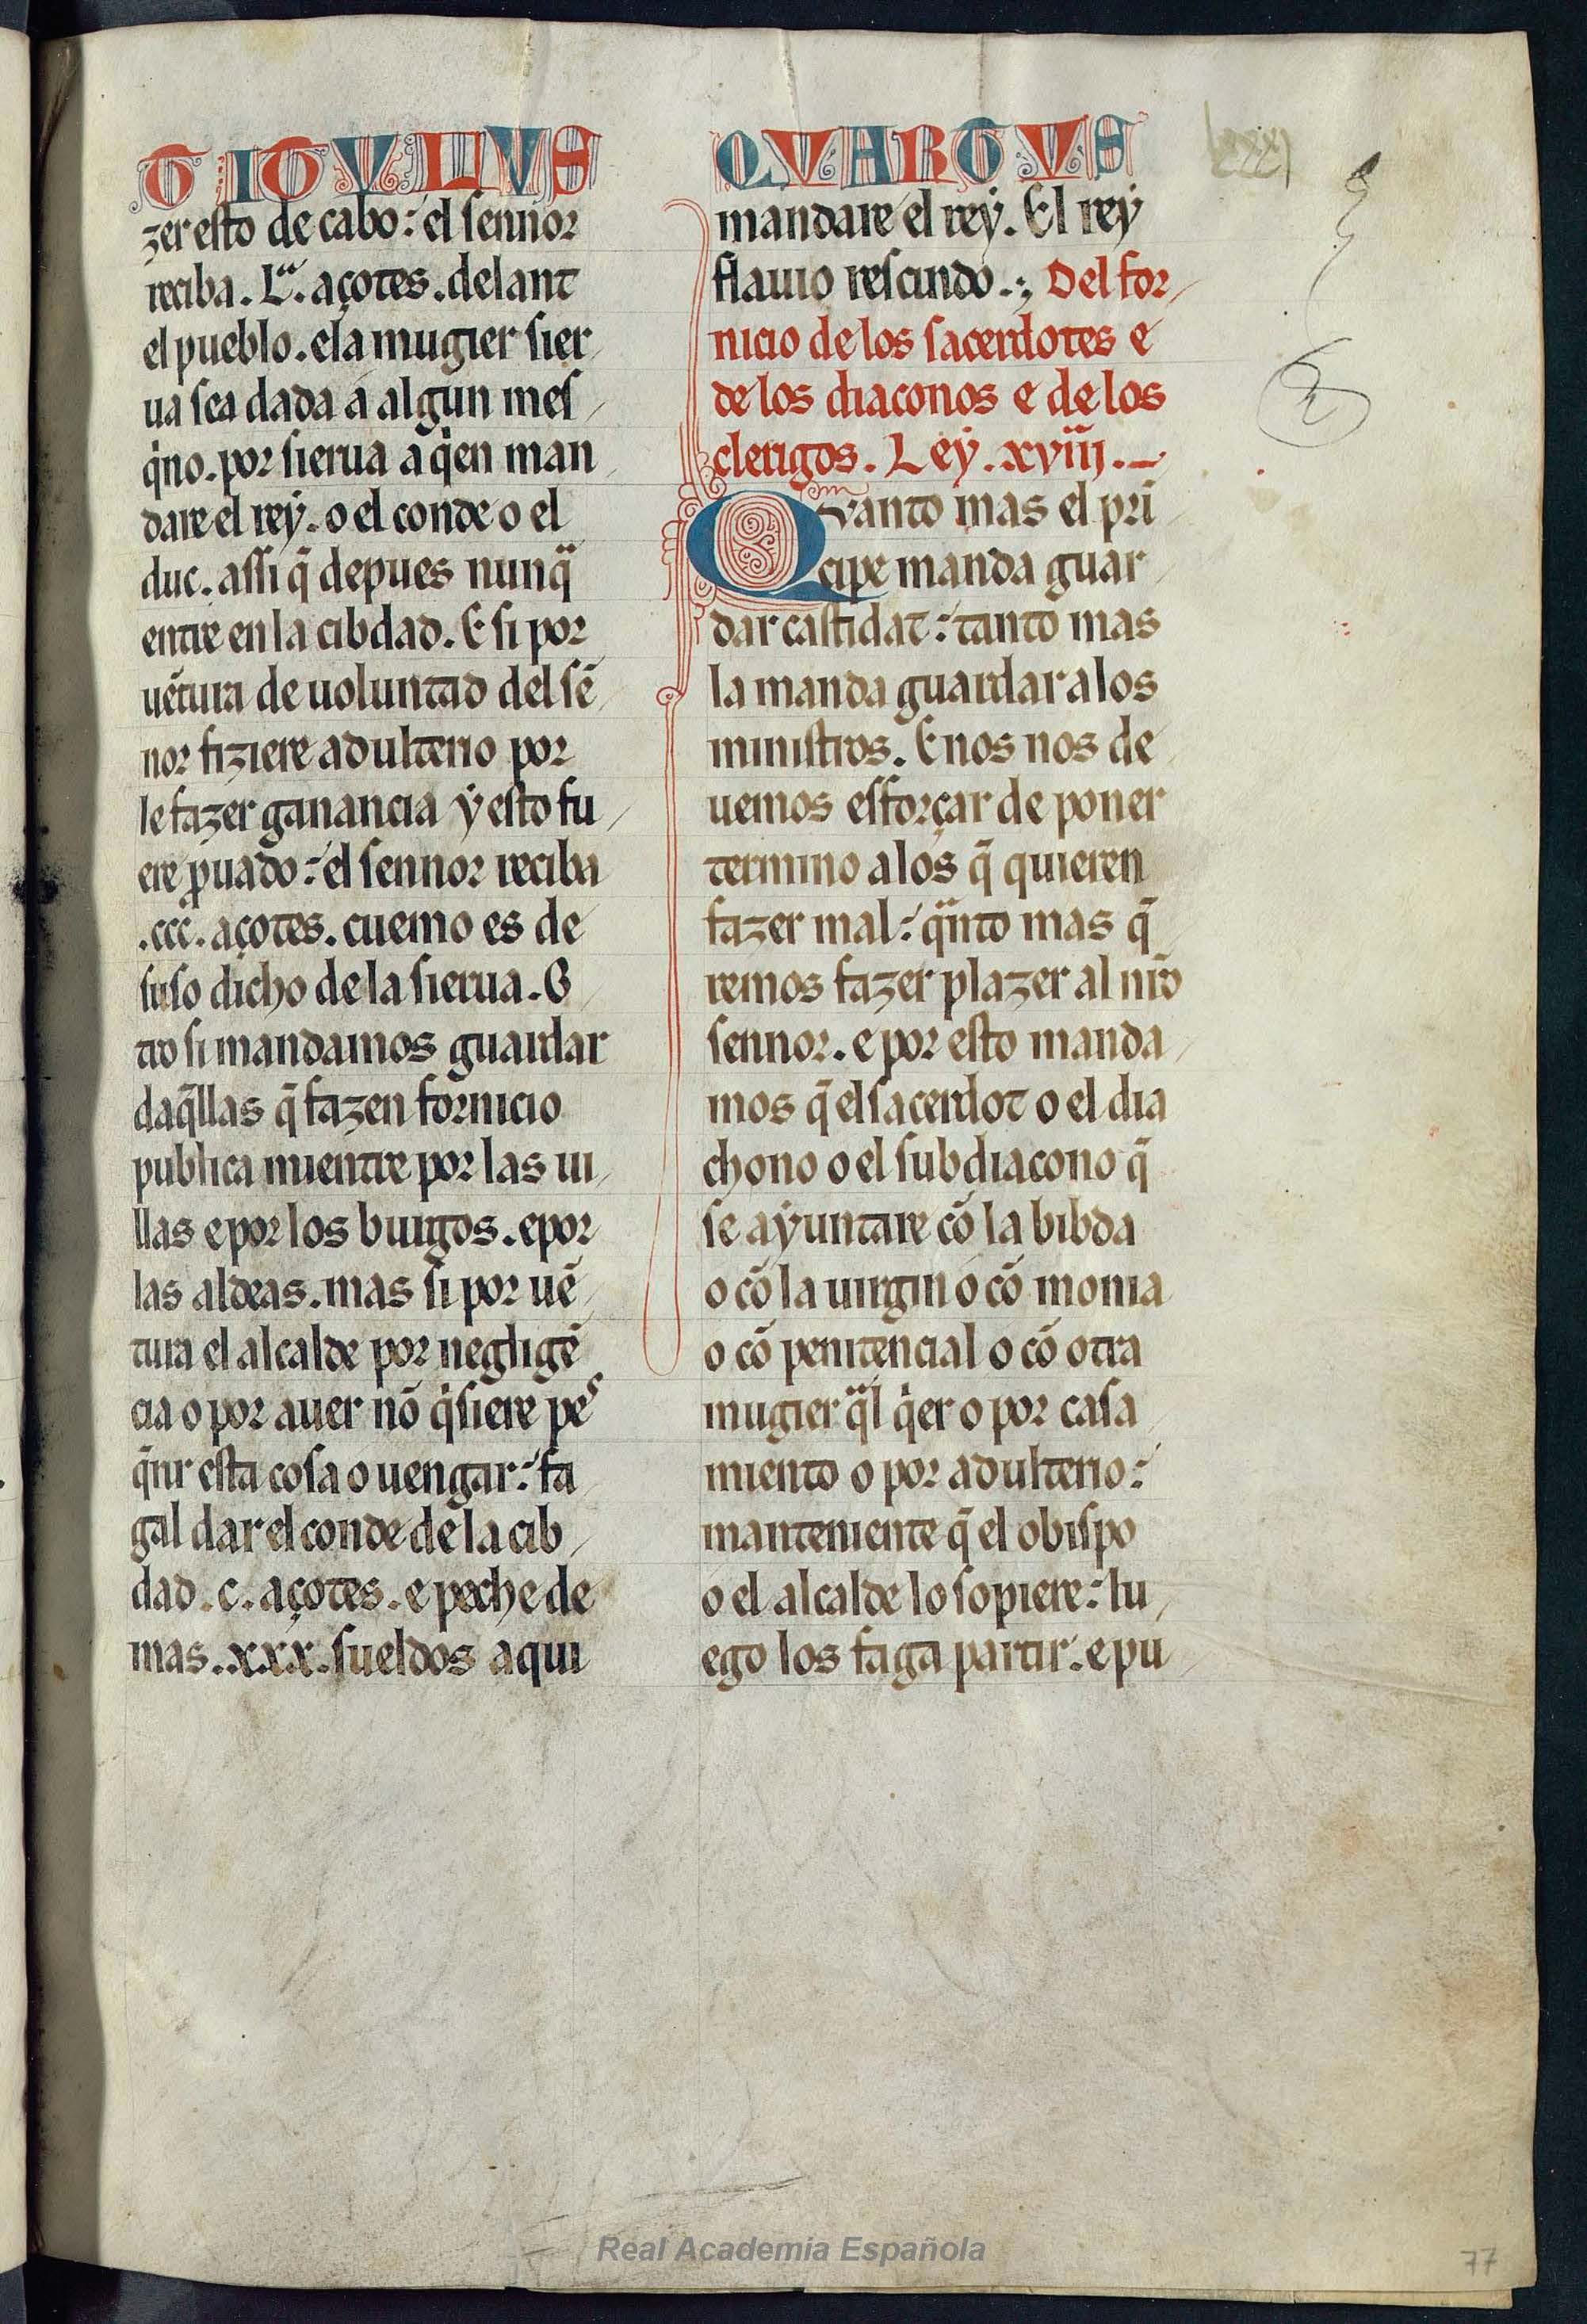 TITVLVS
zer esto de cabo: el sennor
reciba. Lª. açotes. delant
el pueblo. ela mugier sier
ua sea dada a algun mes
q̇no. por sierua a q̇en man
dare el rey. o el conde o el
duc. assi q̃ depues nunqᷓ
entre en la cibdad. E si por
uẽtura de uoluntad del sẽ
nor fiziere adulterio por
le fazer ganancia ẏ esto fu
ere ꝓuado: el sennor reciba
.ccc. açotes. cuemo es de
suso dicho de la sierua. O
tro si mandamos guardar
daq̃llas q̃ fazen fornicio
publica mientre por las ui
llas e por los burgos. e por
las aldeas. mas si por uẽ
tura el alcalde por negligẽ
cia o por auer nõ q̇siere pes
q̃rir esta cosa o uengar: fa
gal dar el conde de la cib
dad .c. açotes. e peche de
mas .xxx. sueldos a qui
QVARTVS
mandare el rey. El rey
flauio rescindo.; Del for
nicio de los sacerdotes e
de los diaconos e de los
clerigos. Ley. xviij.
Quanto mas el pri
cipe manda guar
dar castidat: tanto mas
la manda guardar a los
ministros. E nos nos de
uemos esforçar de poner
termino a los q̃ quieren
fazer mal: qᷓnto mas q̃
remos fazer plazer al nr̃o
sennor. e por esto manda
mos q̃ el sacerdot o el dia
chono o el subdiacono q̃
se aẏuntare cõ la bibda
o cõ la uirgin o cõ monia
o cõ penitencial o cõ otra
mugier qᷓl q̇er o por casa
miento o por adulterio:
manteniente q̃ el obispo
o el alcalde lo sopiere: lu
ego los faga partir. e pu
Real Academia Española
77